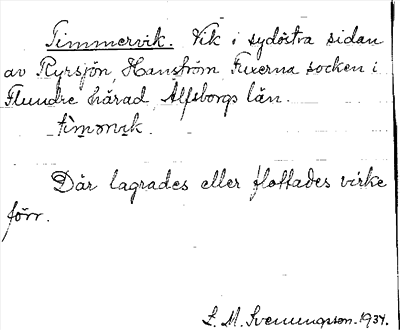 Timmervik. Vik i sydöstra sidan
av Ryrsjön, Hanström Fuxerna socken i
Flundre härad, Älfsborgs län.
timərvik.
Där lagrades eller flottades virke
förr.
L. M. Svenungsson. 1934.